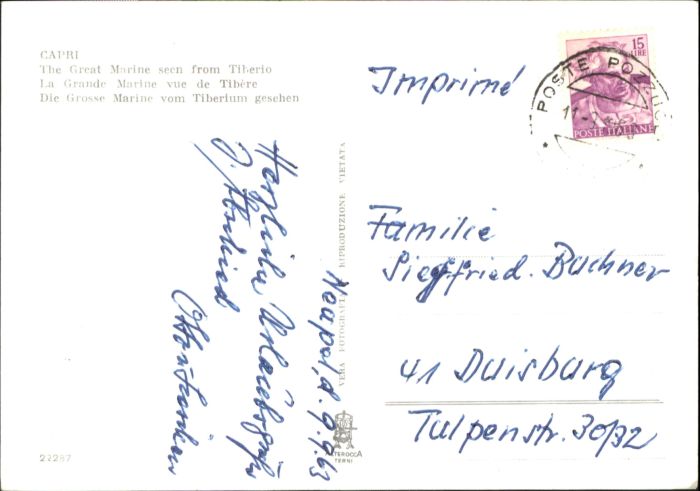 CAPRI
The Great Marine seen from Tiberio
La Grande Marine vue de Tibère
Die Grosse Marine vom Tiberium gesehen
15
LIRE
POSTE ITALIANE
POSTE PO
11-
Imprimé
Familie
Siegfried Buchner
41 Duisburg
Tulpenstr. 30/32
Neapel, d. 9.9.63
Herzliche Urlaubsgrüße
VERA FOTOGRAFIA RIPRODUZIONE VIETATA
TERNI
22287